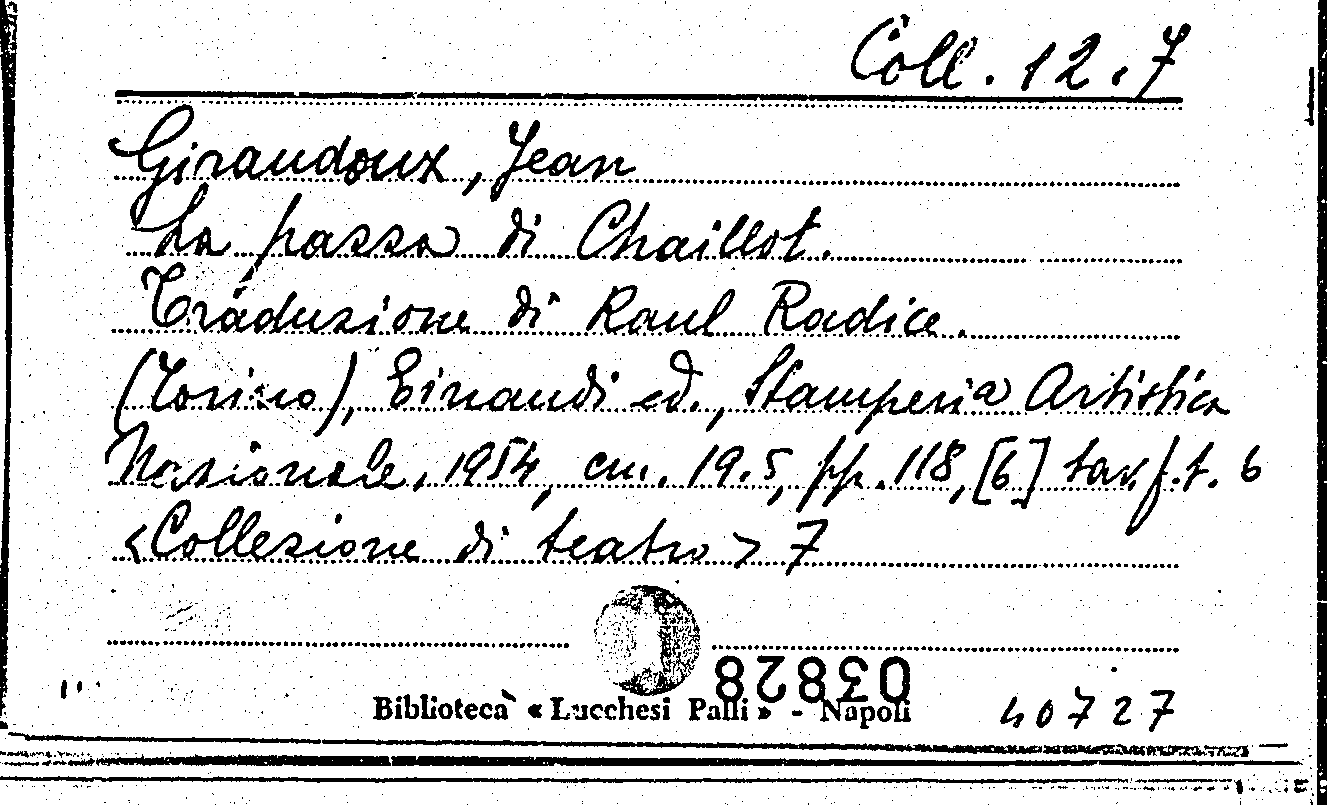 Coll. 12.7
Giraudoux, Jean
La pazza di Chaillot.
Traduzione di Raul Radice.
(Torino), Einaudi ed., Stamperia Artistica
Nazionale, 1954, cm. 19.5, pp. 118, [6] tav. f.t. 6
<Collezione di teatro> 7
03828
Biblioteca « Lucchesi Palli » - Napoli
40727